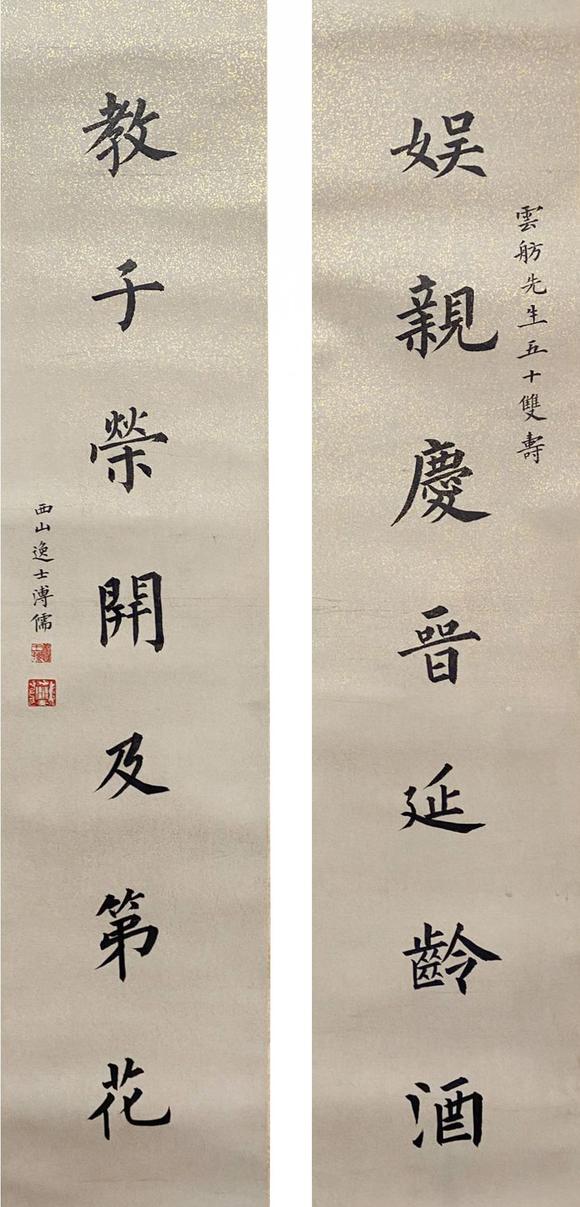 雲舫先生五十雙壽
娛親慶晉延齡酒
教子榮開及第花
西山逸士溥儒